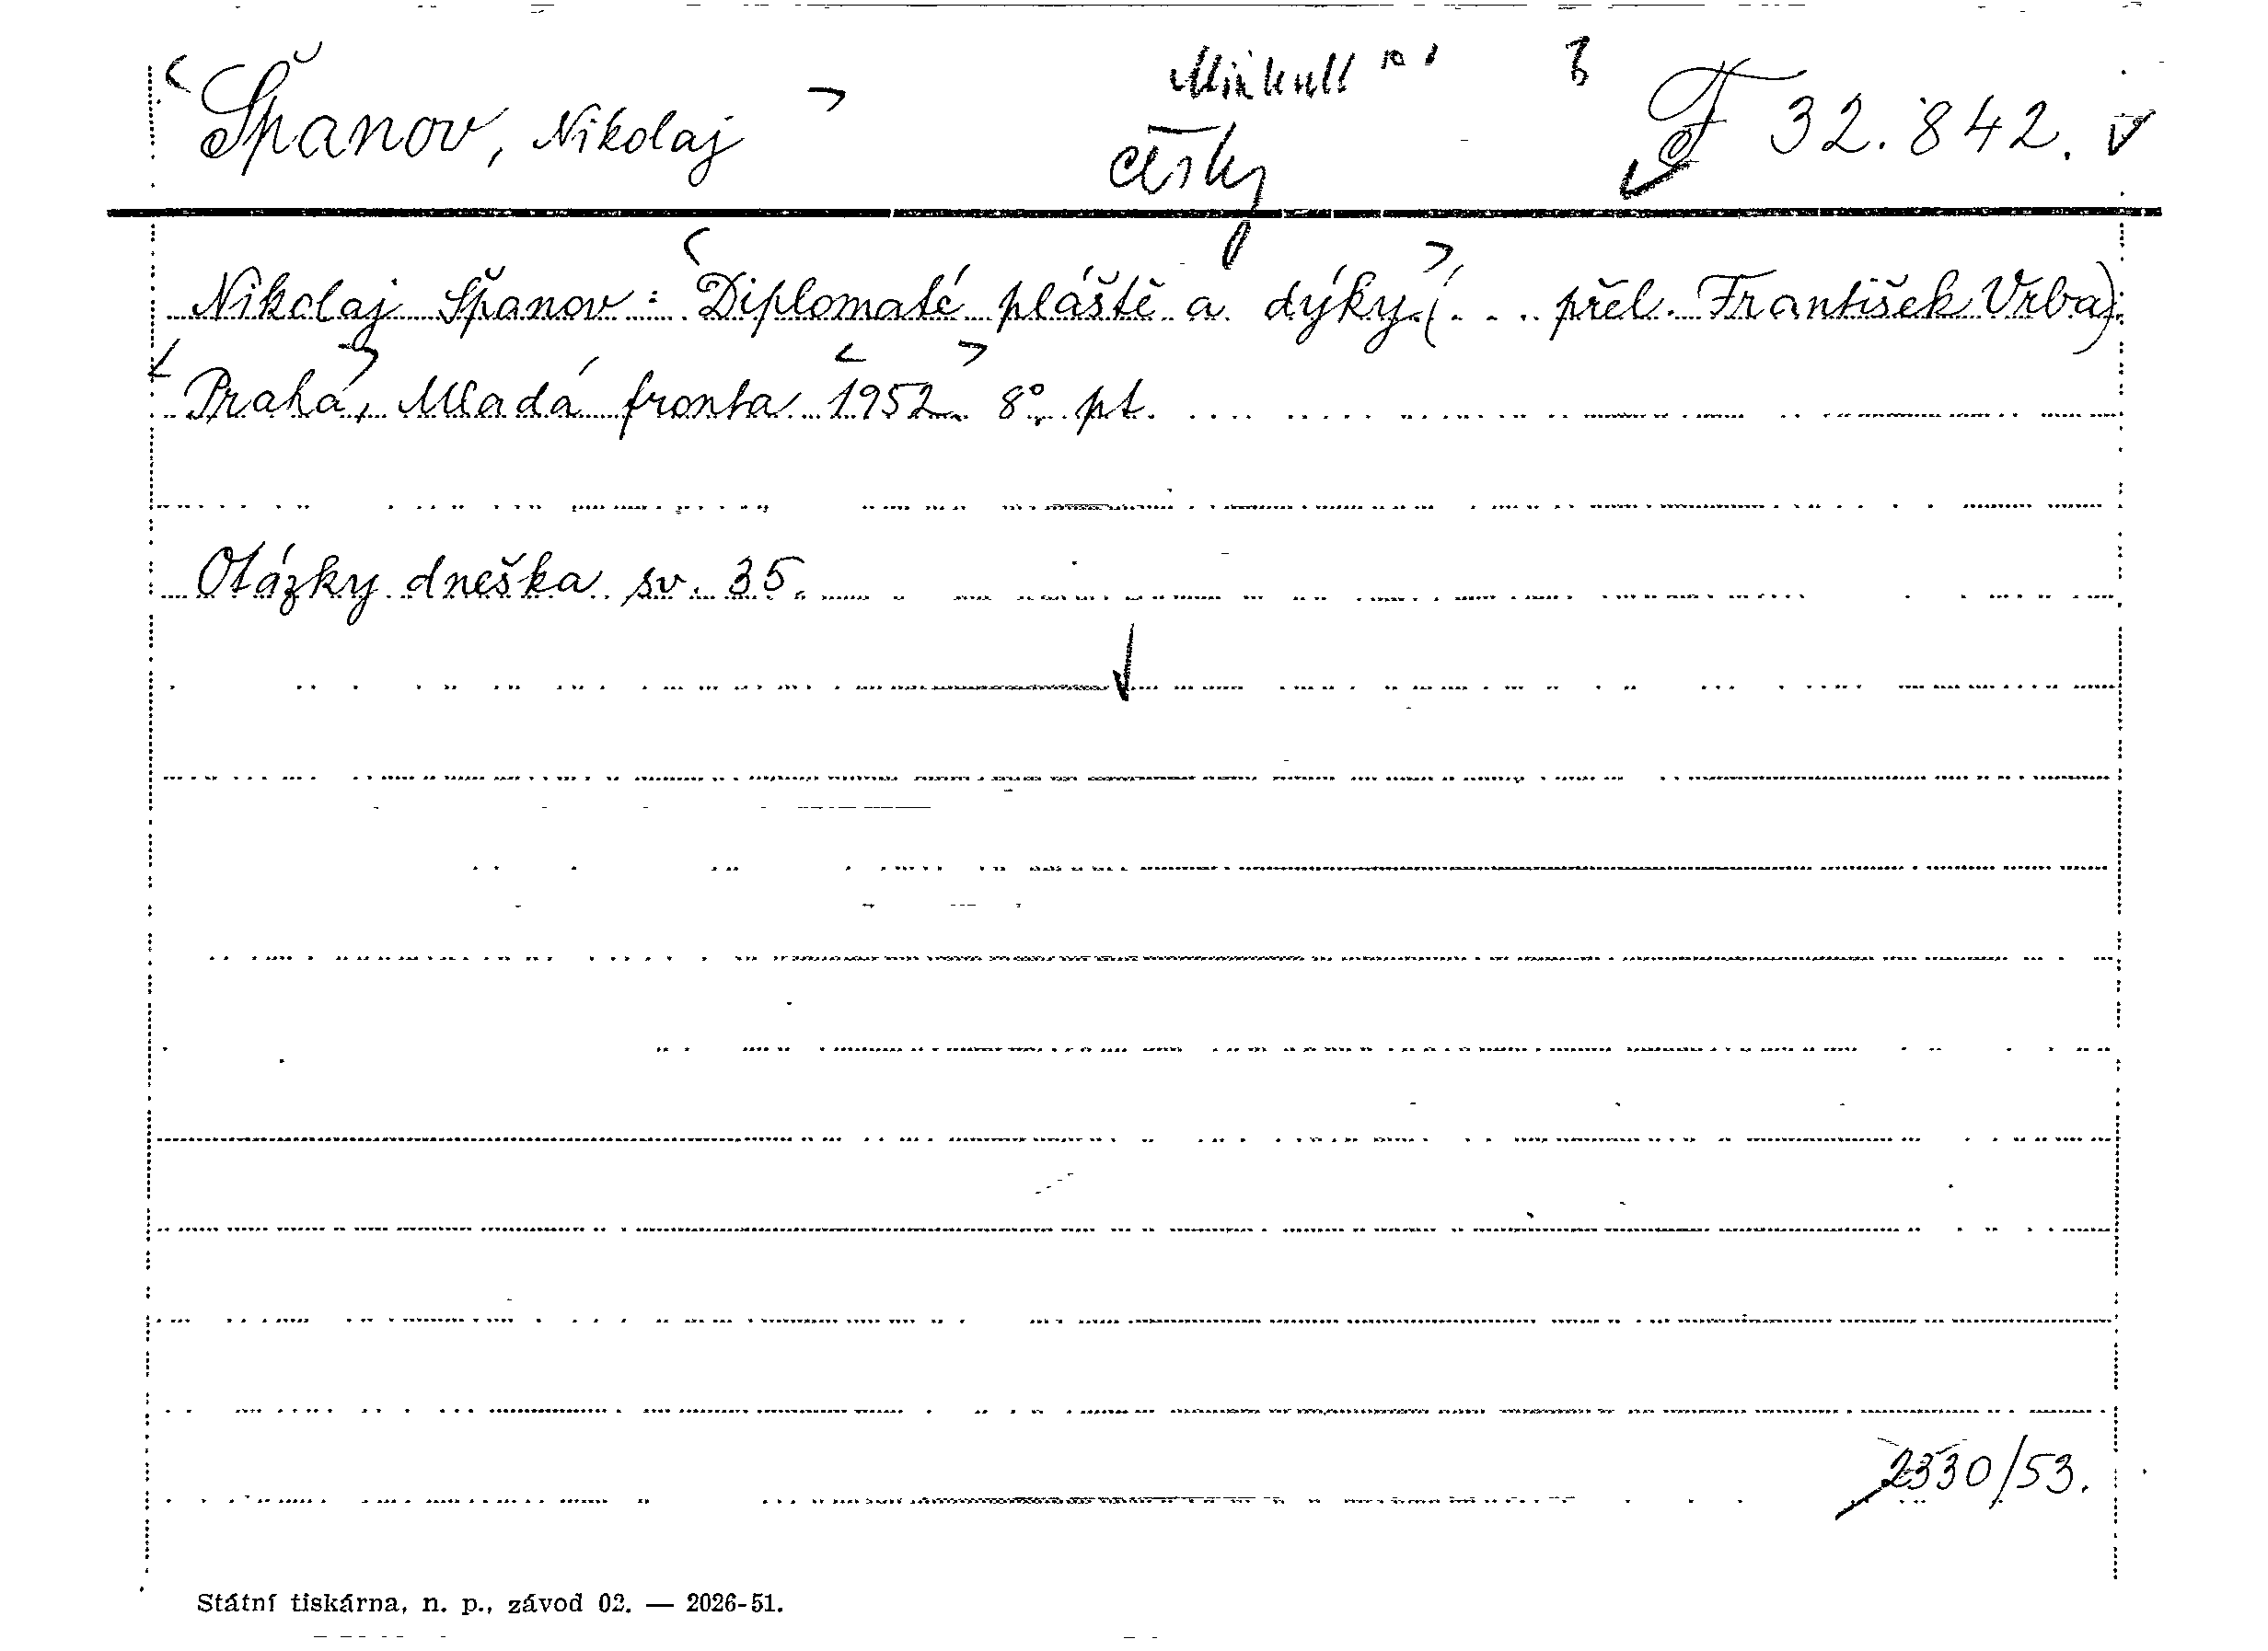 Španov, Nikolaj
česky
F 32.842.
Nikolaj Španov: Diplomaté pláště a dýky. (... přel. František Vrba).
Praha, Mladá fronta 1952. 8°, pt.
Otázky dneška sv. 35.
2330/53.
Státní tiskárna, n. p., závod 02. — 2026-51.